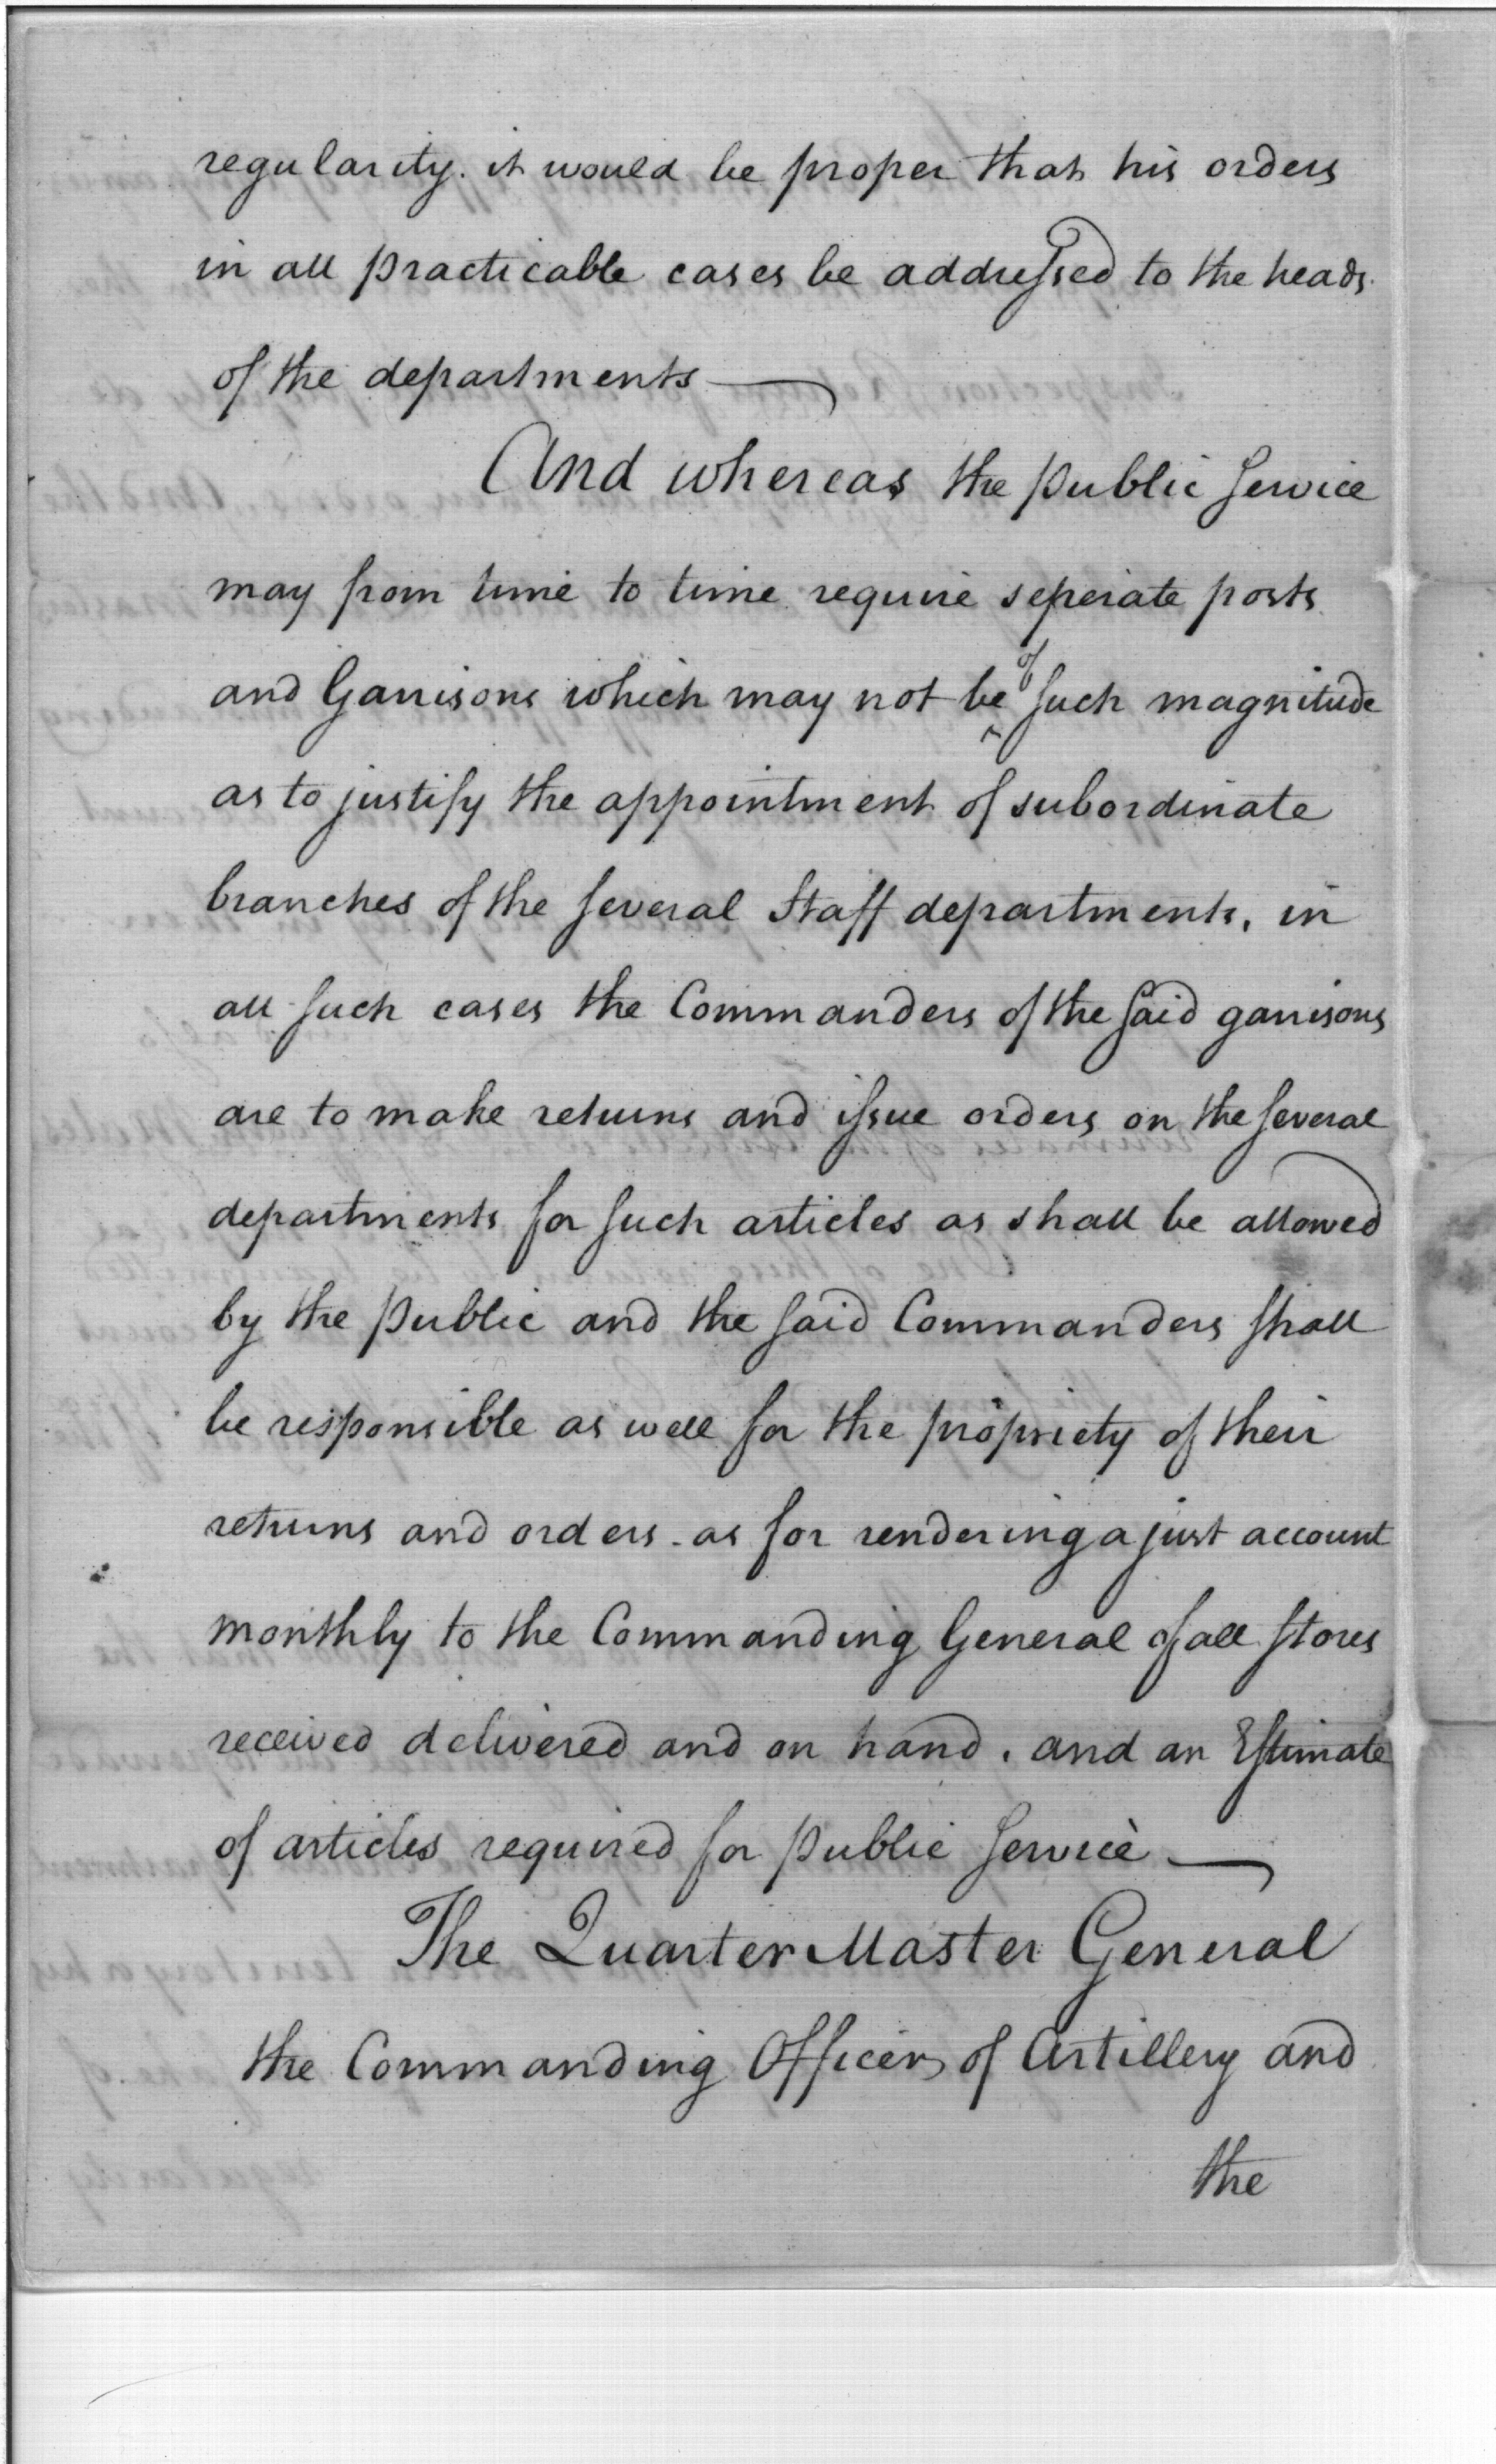 regularity. it would be proper that his orders
in all practicable cases be addressed to the heads
of the departments —
And whereas the public Service
may from time to time require seperate posts
and Garrisons which may not be of such magnitude
as to justify the appointment of subordinate
branches of the several Staff departments, in
all such cases the Commanders of the said garrisons
are to make returns and issue orders on the several
departments for such articles as shall be allowed
by the public and the said Commanders shall
be responsible as well for the propriety of their
returns and orders - as for rendering a just account
monthly to the Commanding General of all stores
received delivered and on hand, and an Estimate
of articles required for public Service —
The Quarter Master General
the Commanding Officers of Artillery and
the